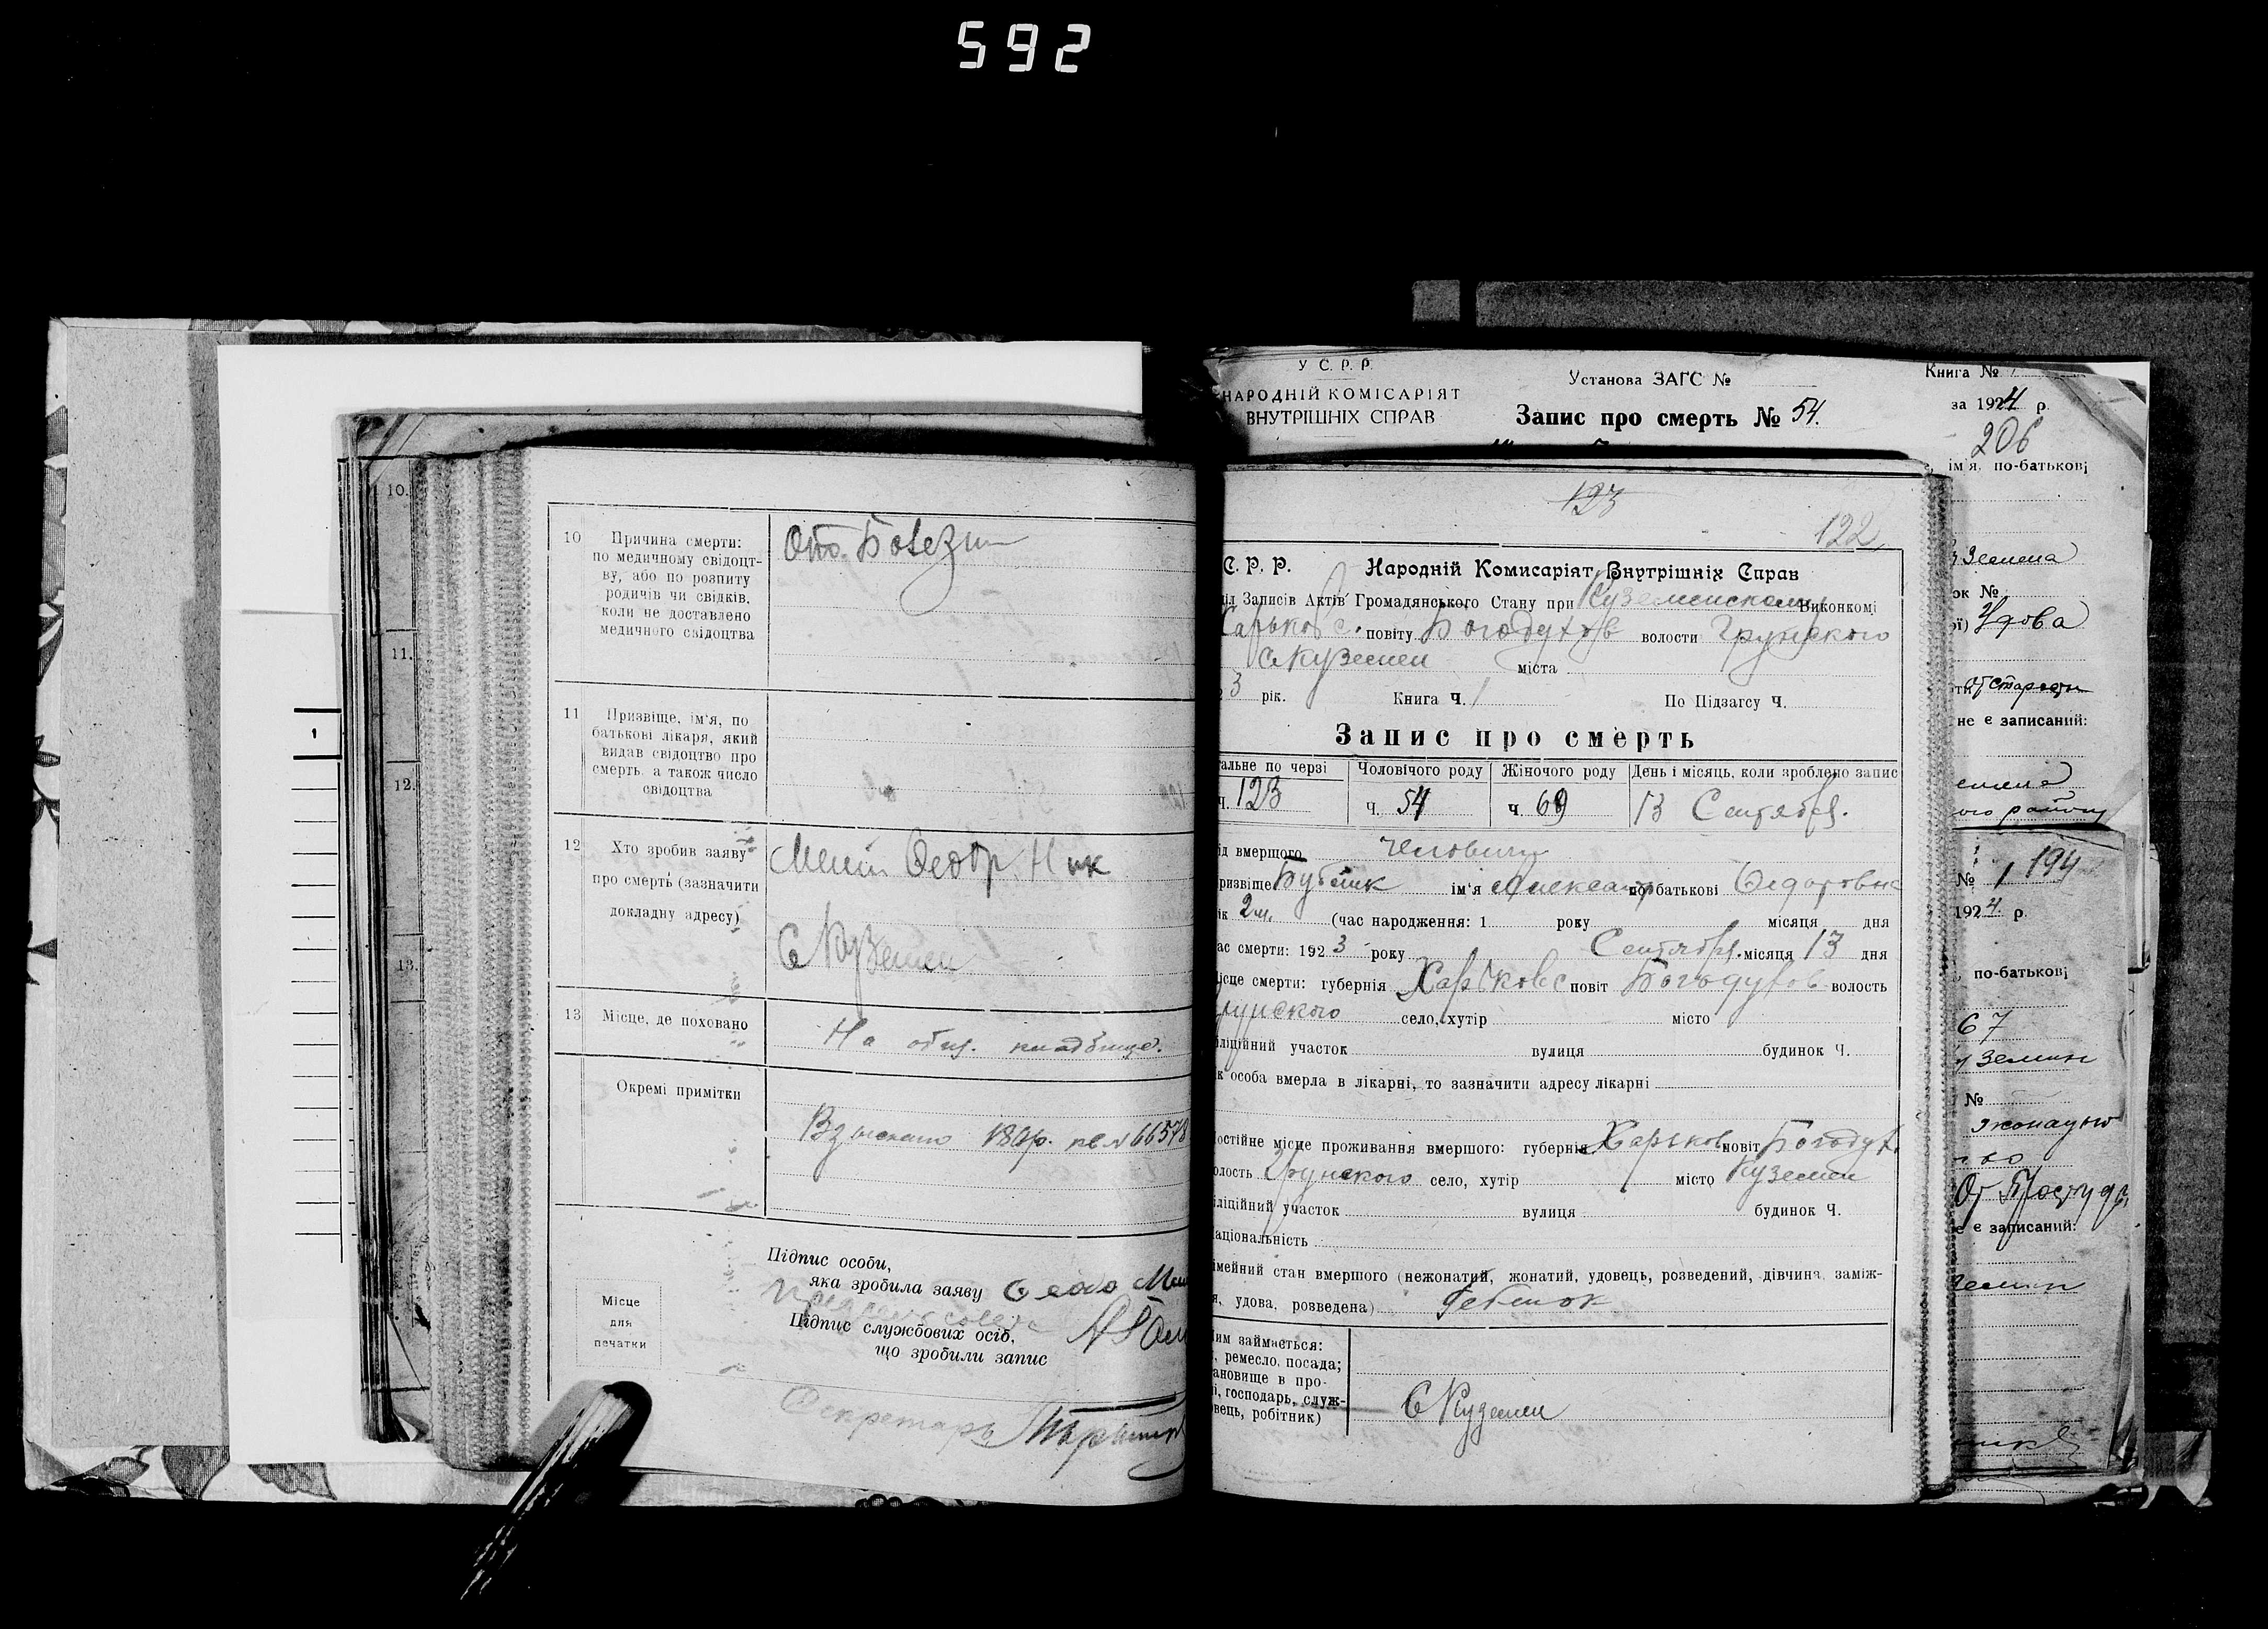 592
10.
11.
12.
13.
10 Причина смерти:
по медичному свідоцт-
ву, або по розпиту
родичів чи свідків,
коли не доставлено
медичного свідоцтва
11 Призвіще, ім'я, по
батькові лікаря, який
видав свідоцтво про
смерть, а також число
свідоцтва
12 Хто зробив заяву
про смерть (зазначити
докладну адресу)
Федор. Ник
С Куземен
13 Місце, де поховано
На общ. кладбище.
Окремі примітки
Взыскано 180р. кв № 66578
Підпис особи,
яка зробила заяву
Підпис службових осіб,
що зробили запис
Місце
для
печатки
Секретарь
У С. Р. Р.
НАРОДНІЙ КОМІСАРІЯТ
ВНУТРІШНІХ СПРАВ
Установа ЗАГС №
Запис про смерть № 54.
Книга №
за 1924 р.
206
ім'я, по-батькові
123
122
С. Р. Р. Народній Комисаріят Внутрішніх Справ
діл Записів Актів Громадянського Стану при Куземенском Виконкомі
Харьковс. повіту Богодухов волости Грунского
с Куземен міста
3 рік. Книга Ч. 1 По Підзагсу Ч.
Запис про смерть
гальне по черзі Чоловічого роду Жіночого роду День і місяць, коли зроблено запис
ч. 123 ч. 54 ч. 69 13 Сентября.
ід вмершого
ризвіще Бублик ім'я Александр по-батькові Федоровик
ік 2 м. (час народження: 1 року місяця дня
ас смерти: 1923 року Сентября. місяця 13 дня
ісце смерти: губернія Харьковс повіт Богодухов волость
рунского село, хутір місто
іліційний участок вулиця будинок Ч.
к особа вмерла в лікарні, то зазначити адресу лікарні
остійне місце проживання вмершого: губернія Харьков повіт Богодух.
олость Грунского село, хутір місто Куземен
іліційний участок вулиця будинок Ч.
аціональність
імейний стан вмершого (нежонатий, жонатий, удовець, розведений, дівчина, заміж-
я, удова, розведена) Ребенок
им займається:
, ремесло, посада;
ановище в про-
і, господарь, служ-
овець, робітник)
С Куземен
ок №
Удова
от старости
не є записаний:
ого району
№ 1 194
1924 р.
по-батькові
67
№
От Простуды
є записаний: